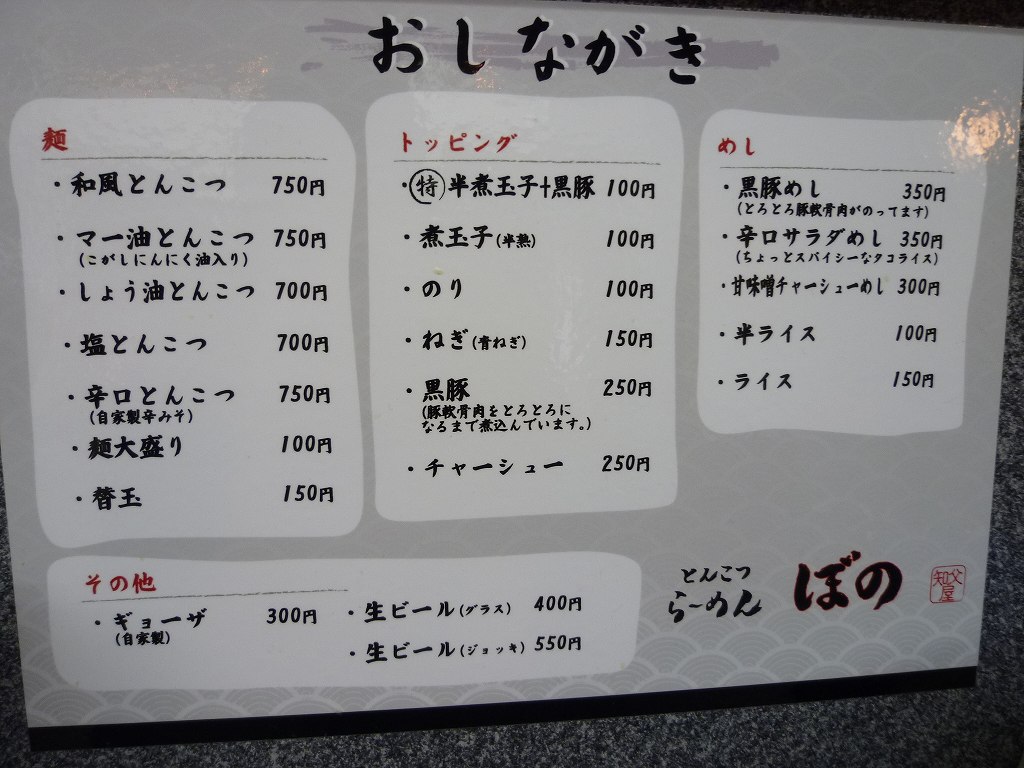 おしながき
麺
・和風とんこつ 750円
・マー油とんこつ 750円
(こがしにんにく油入り)
・しょう油とんこつ 700円
・塩とんこつ 700円
・辛口とんこつ 750円
(自家製辛みそ)
・麺大盛り 100円
・替玉 150円
トッピング
・㊕半煮玉子+黒豚 100円
・煮玉子(半熟) 100円
・のり 100円
・ねぎ(青ねぎ) 150円
・黒豚 250円
(豚軟骨肉をとろとろに
なるまで煮込んでいます。)
・チャーシュー 250円
めし
・黒豚めし 350円
(とろとろ豚軟骨肉がのってます)
・辛口サラダめし 350円
(ちょっとスパイシーなタコライス)
・甘味噌チャーシューめし 300円
・半ライス 100円
・ライス 150円
その他
・ギョーザ 300円
(自家製)
・生ビール(グラス) 400円
・生ビール(ジョッキ) 550円
とんこつ
らーめん
ぼの